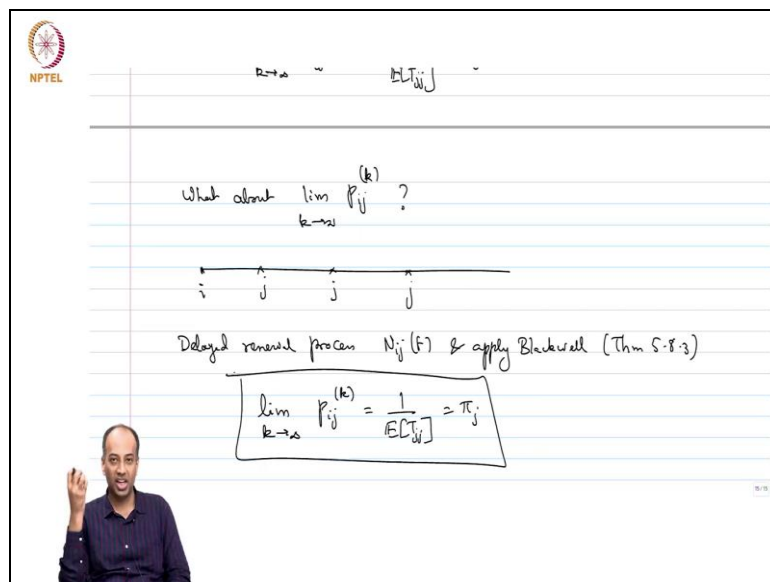 NPTEL
k→∞ E[T_jj]
What about lim P_ij^(k) ?
k→∞
i j j j
Delayed renewal process N_ij(t) & apply Blackwell (Thm 5.8.3)
lim P_ij^(k) = 1/E[T_jj] = π_j
k→∞
15/15